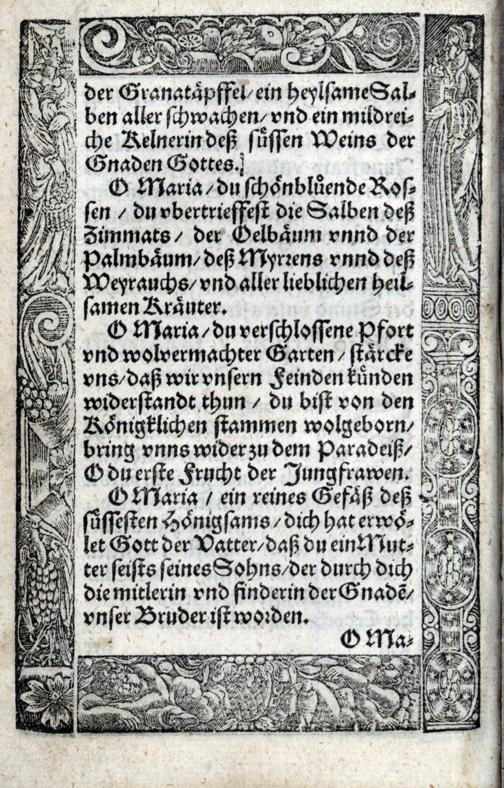 der Granatäpffel/ ein heylsame Sal-
ben aller schwachen/ vnd ein mildrei-
che Kelnerin deß süssen Weins der
Gnaden Gottes.
O Maria/ du schönblůende Ros-
sen / du vbertrieffest die Salben deß
Zimmats / der Oelbäum vnnd der
Palmbäum/ deß Myrrens vnnd deß
Weyrauchs/ vnd aller lieblichen heil-
samen Kräuter.
O Maria/ du verschlossene Pfort
vnd wolvermachter Garten/ stärcke
vns/ daß wir vnsern Feinden künden
widerstandt thun / du bist von den
Königklichen stammen wolgeborn/
bring vnns wider zu dem Paradeiß/
O du erste Frucht der Jungfrawen.
O Maria / ein reines Gefäß deß
süssesten Hönigsams/ dich hat erwö-
let Gott der Vatter/ daß du ein Mut-
ter seists seines Sohns/ der durch dich
die mitlerin vnd finderin der Gnadẽ/
vnser Bruder ist worden.
O Ma-